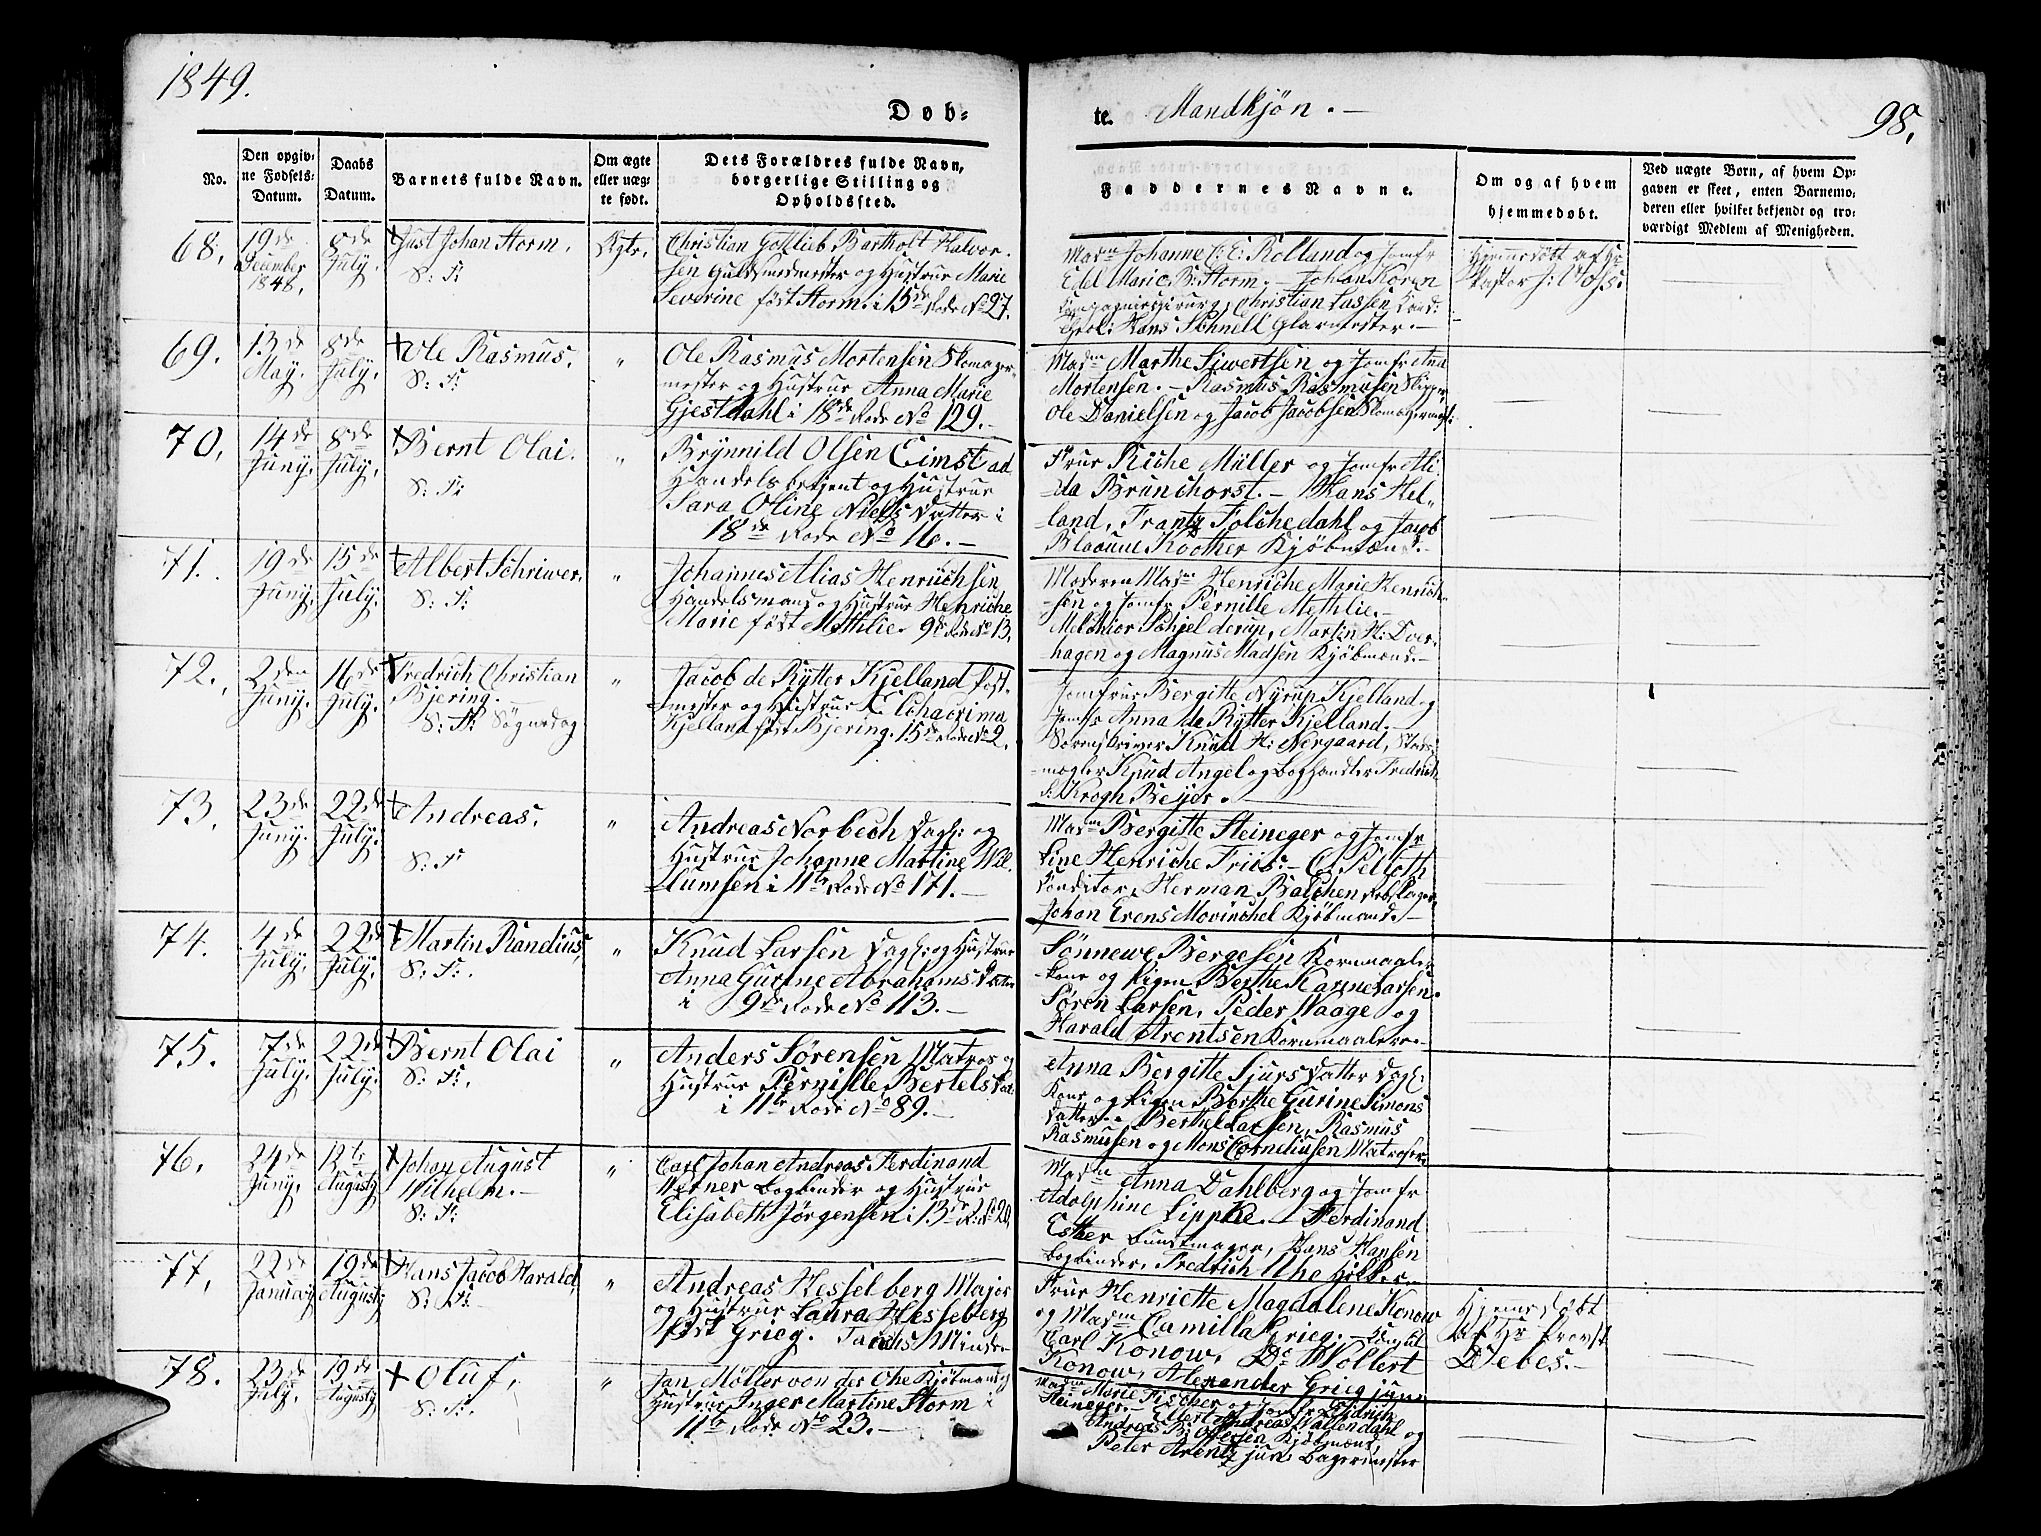 1849.
Døb-
te. Mandkjøn.-
98.
No.
Den opgiv-
ne Fødsels-
Datum.
Daabs
Datum.
Barnets fulde Navn.
Om ægte
eller uæg-
te født.
Dets Forældres fulde Navn,
borgerlige Stilling og
Opholdssted.
Faddernes Navne.
Om og af hvem
hjemmedøbt.
Ved uægte Børn, af hvem Op-
gaven er skeet, enten Barnemo-
deren eller hvilket bekjendt og tro-
værdigt Medlem af Menigheden.
68.
19de
December
1848.
8de
July.
Just Johan Storm.
S: F:
Ægte.
Christian Gottlieb Bartholt Halvor-
sen Guldsmedmester og Hustrue Marie
Severine født Storm. i 15de Rode No 27.
Madm Johanne C: E: Rolland og Jomfr
Edel Marie B: Storm. - Johan Koren
Compagniechirurg, Christian Lassen Cand:
theol: Hans Schnell Glarmester.-
Hjemedøbt af Hr
Pastor J: Vohs.
69.
13de
May.
8de
July.
Ole Rasmus.
S: F:
"
Ole Rasmus Mortensen Skomager-
mester og Hustrue Anna Marie
Gjestdahl i 18de Rode No 129.-
Madm Marthe Siwertsen og Jomfr Ana
Mortensen. - Rasmus Rasmusen Skipper
Ole Danielsen og Jacob Jacobsen Skomagermest:
70.
14de
Juny.
8de
July.
Bernt Olai.
S: F:
"
Brynnild Olsen Eimstad
Handelsbetjent og Hustrue
Sara Oline Niels Datter i
18de Rode No 16.-
Frue Riche Müller og Jomfr Ali-
da Brunchorst. - Hans Hel-
land, Frantz Folchedahl og Jacob
Blaauue Koother Kjøbmænd.-
71.
19de
Juny.
15de
July.
Albert Schriwer.
S: F:
"
Johannes Alias Henrichsen
Handelsmand og Hustrue Henriche
Marie født Methlie. 9de Rode No 13.
Moderen Madm Henriche Marie Henrich-
sen og Jomfr Pernille Methlie.-
Melchior Schjelderup, Martin H: Over-
hagen og Magnus Madsen Kjøbmænd.-
72.
2den
Juny.
16de
July.
Fredrich Christian
Bjering.
S: F: Søgnedag
"
Jacob de Rytter Kjelland Post-
mester og Hustrue Elchacrima
Kjelland født Bjering. 15de Rode No 2.
Jomfrue Bergitte Nyrup Kjelland og
Jomfr Anna de Rytter Kjelland.-
Sorenskriver Knud H: Nergaard, Stads-
mægler Knud Angel og Boghandler Fredrich
D: Krogh Beyer.
73.
23de
Juny.
22de
July.
Andreas.
S: F:
"
Andreas Norbech Dagk: og
Hustrue Johanne Martine Wil-
lumsen i 11te Rode No 171.-
Madm Bergitte Steineger og Jomfr
Line Henriche Friis. - C: Pelloth
Conditor, Herman Balchen Rebslager
Johan Erens Mowinchel Kjøbmænd.-
74.
4de
July.
22de
July.
Martin Randius.
S: F:
"
Knud Larsen Dagk: og Hustrue
Anna Gurine Abrahams Datter
i 9de Rode No 113.-
Sønnewe Bergesen Kornmaaler-
kone og Pigen Berthe Karine Larsen.
Søren Larsen, Peder Waage og
Harald Arentsen Kornmaalere.
75.
7de
July.
22de
July.
Bernt Olai
S: F:
"
Anders Sørensen Matros og
Hustrue Pernille Bertels Dat
i 11te Rode No 89.-
Anna Bergitte Sjurs Datter Dagk:
Kone og Pigen Berthe Gurine Simons
Datter. - Berthel Larsen, Rasmus
Rasmusen og Mons Corneliusen Matroser
76.
24de
Juny.
12te
Augusty
Johan August
Wilhelm.-
S: F:
"
Carl Johan Andreas Ferdinand
Werner Bogbinder og Hustrue
Elisabeth Jørgensen i 13de R: No 20.
Madm Anna Dahlberg og Jomfr
Adolphine Lippke. - Ferdinand
Esther Buntmager, Hans Hansen
Bogbinder, Fredrich Uhe Hikker.
77.
22de
January
19de
Augusty
Hans Jacob Harald.
S: F:
"
Andreas Hesselberg Major
og Hustrue Laura Hesselberg
født Grieg. Jachs Minde.
Frue Henriette Magdalene Konow
og Madm Camilla Grieg. - Consul
Carl Konow, Do Wollert
Konow, Alexander Grieg jun:
Hjemedøbt
af Hr Provst
D: Tebes.-
78.
23de
July.
19de
Augusty
Oluf.
S: F:
"
Jan Møller von der Ohe Kjøbmand og
Hustrue Inger Martine Storm i
11te Rode No 23.-
Madm Marie Fischer og Jomfr Dididrik
Steineger. - Ellert Andreas Wallendahl og
Andreas B: Ottesen Kjøbmænd,
Peter Arentz jun: Bagermester